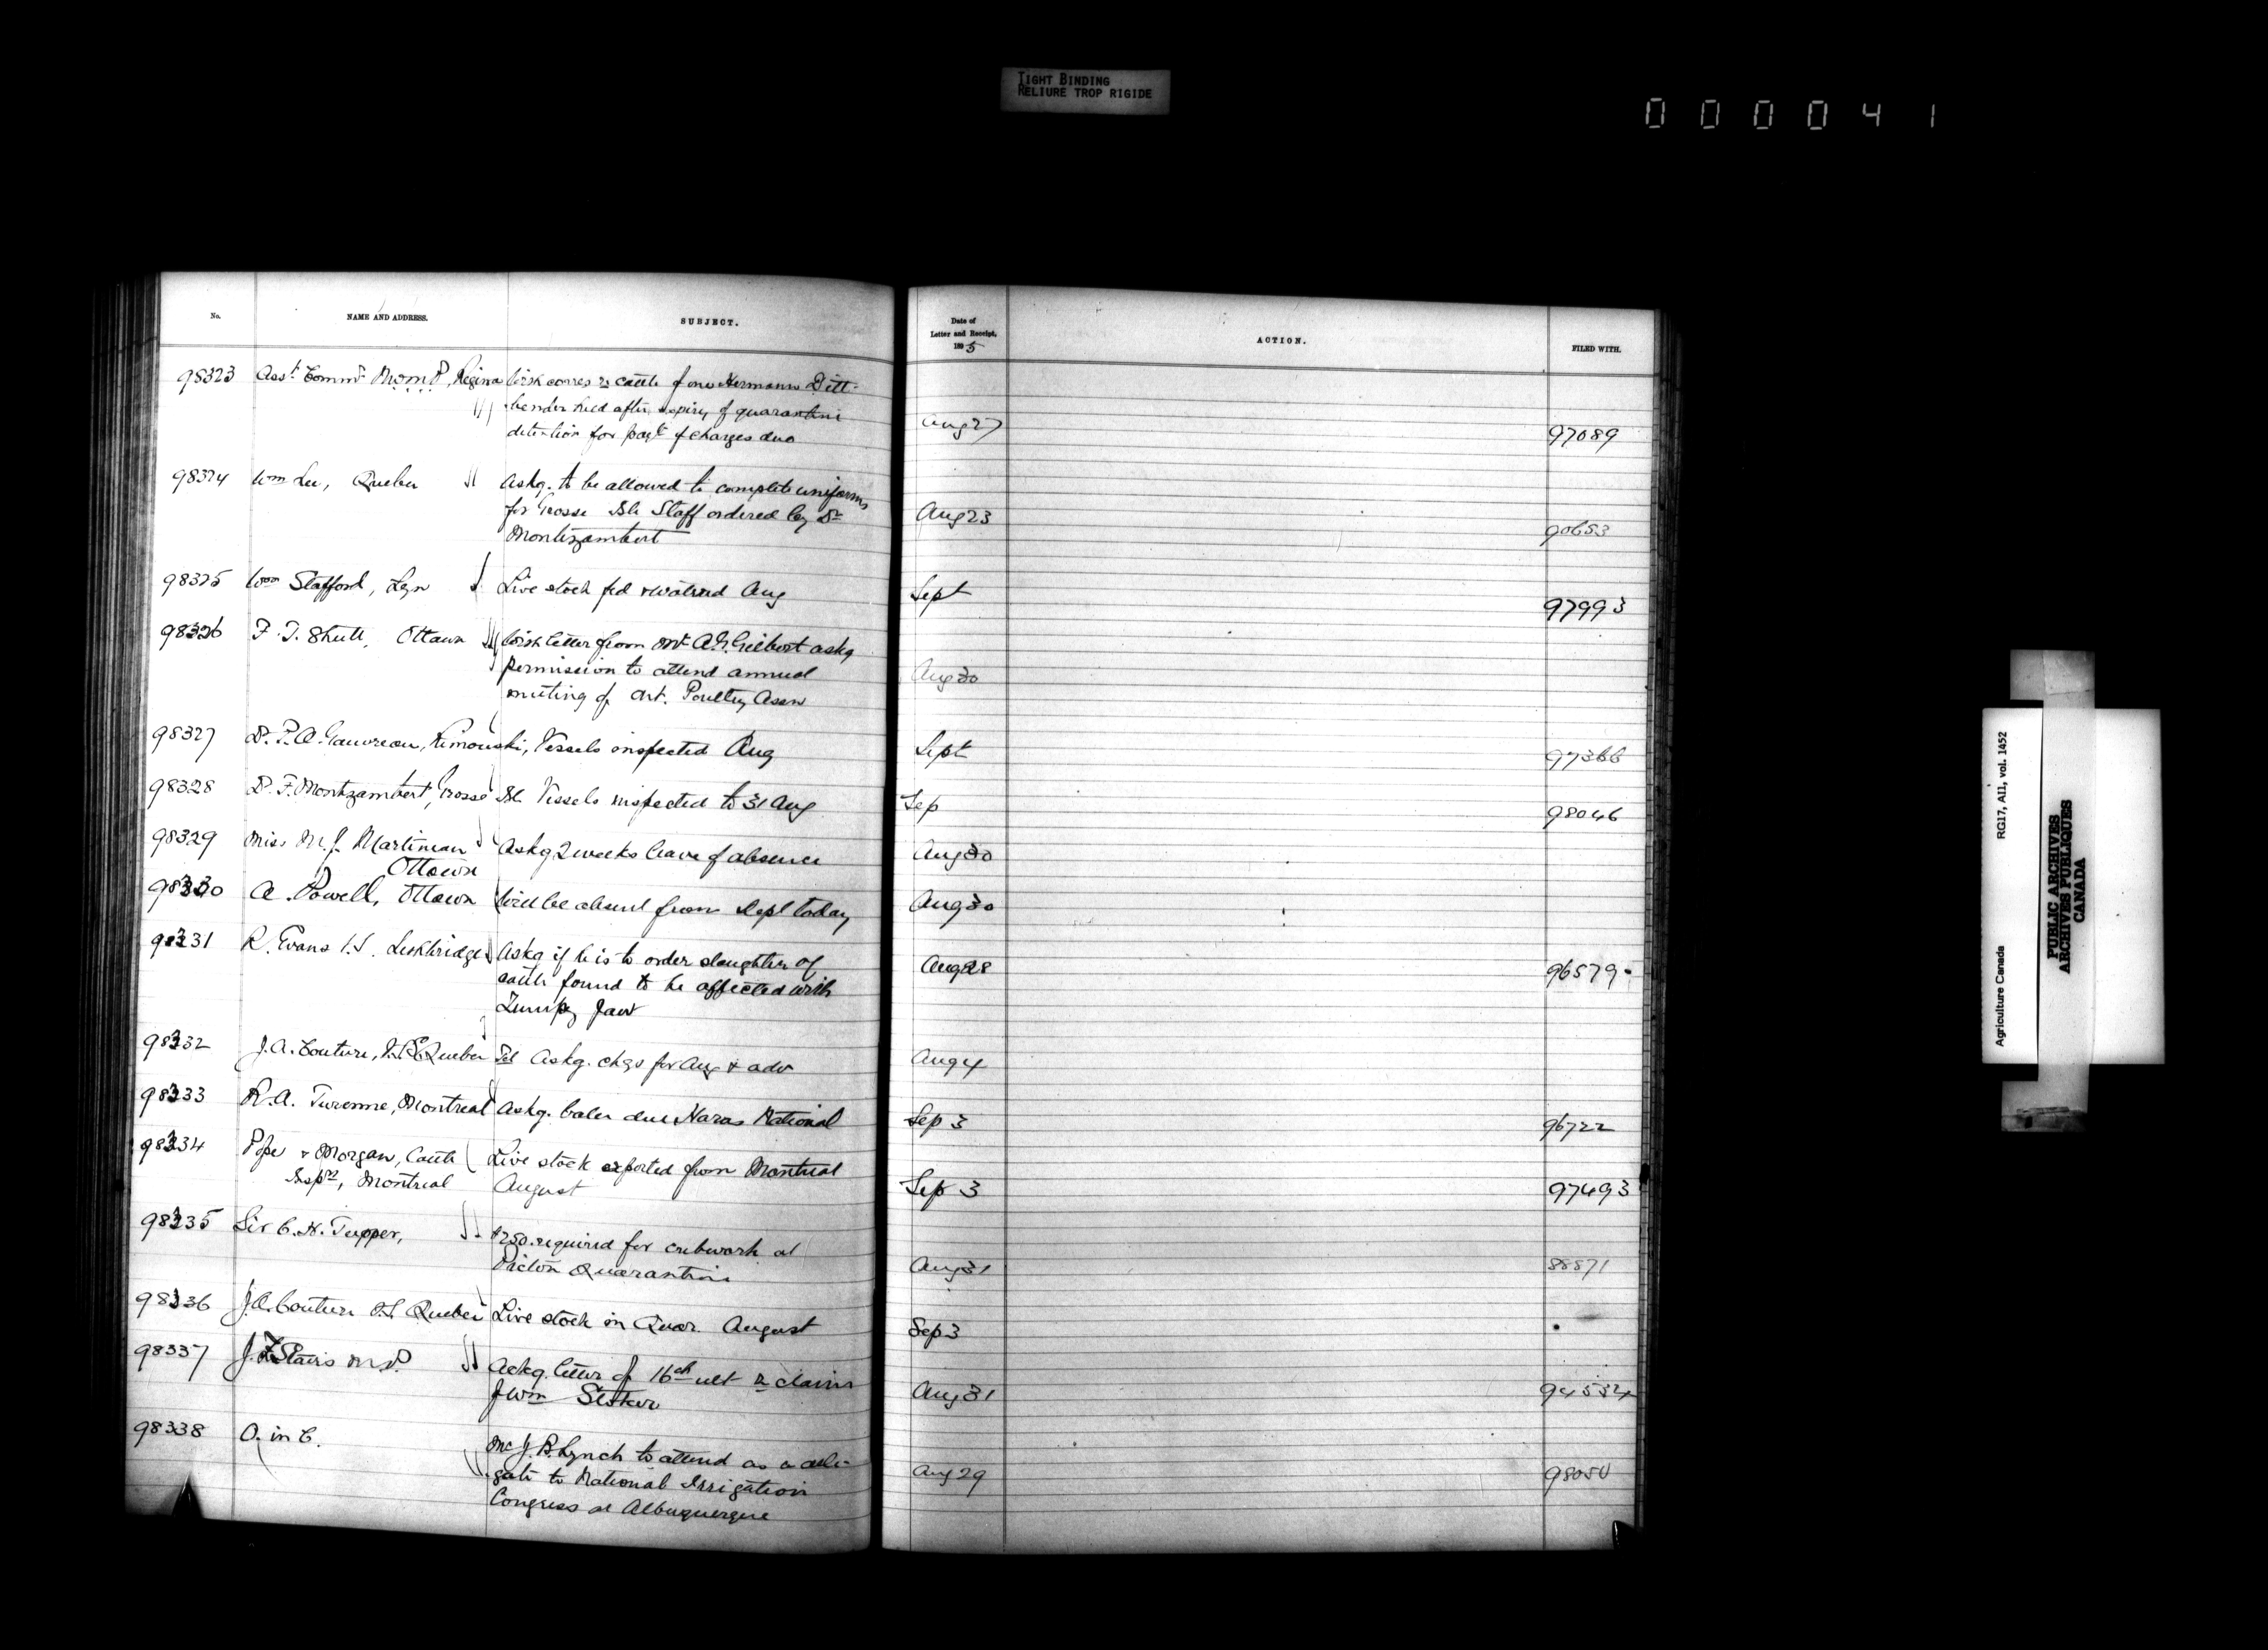 TIGHT BINDING
RELIURE TROP RIGIDE
000041
No.
NAME AND ADDRESS.
SUBJECT.
Date of
Letter and Receipt,
1895
ACTION.
FILED WITH.
98323 Asst. Commr. N.W.M.P., Regina corres re cattle of one Hermann Ditt-
bender held after expiry of quarantine
detention for payt of charges due Aug 27 97089
98324 Wm Lee, Quebec Askg. to be allowed to complete uniforms
for Grosse Isle Staff ordered by Dr Aug 23
Montizambert 90653
98325 Wm Stafford, Lyn Live stock fed & watered Aug Sept 97993
98326 F. T. Shutt, Ottawa letter from Mr A.G. Gilbert askg
permission to attend annual Aug 30
meeting of Ont. Poultry Assn
98327 Dr. P.A. Gauvreau, Rimouski, Vessels inspected Aug Sept 97366
98328 Dr. F. Montizambert, Grosse Isle Vessels inspected to 31 Aug Sep 98046
98329 Miss M.J. Martineau Askg 2 weeks leave of absence Aug 30
Ottawa
98330 A. Powell, Ottawa Will be absent from Dept today Aug 30
98331 R. Evans V.S. Lethbridge Askg if he is to order slaughter of Aug 28 96579
cattle found to be affected with
Lumpy Jaw
98332 J.A. Couture, V.S. Quebec Tel Askg. chqs for Aug & adv Aug 4
98333 R.A. Turenne, Montreal Askg. balce due Haras National Sep 3 96722
98334 Pope & Morgan, Cattle Live stock exported from Montreal
Insprs, Montreal August Sep 3 97493
98335 Sir C.H. Tupper, $250. required for cribwork at
Pictou Quarantine Aug 31 88571
98336 J.A. Couture V.S. Quebec Live stock in Quar. August Sep 3
98337 J.F. Stairs M.P. Ackg. letter of 16th ult re claim
of Wm Stoker Aug 31 94534
98338 O. in C. Mr J.B. Lynch to attend as a dele-
gate to National Irrigation Aug 29
Congress at Albuquerque
Agriculture Canada RG17, AII, vol. 1452
PUBLIC ARCHIVES
ARCHIVES PUBLIQUES
CANADA